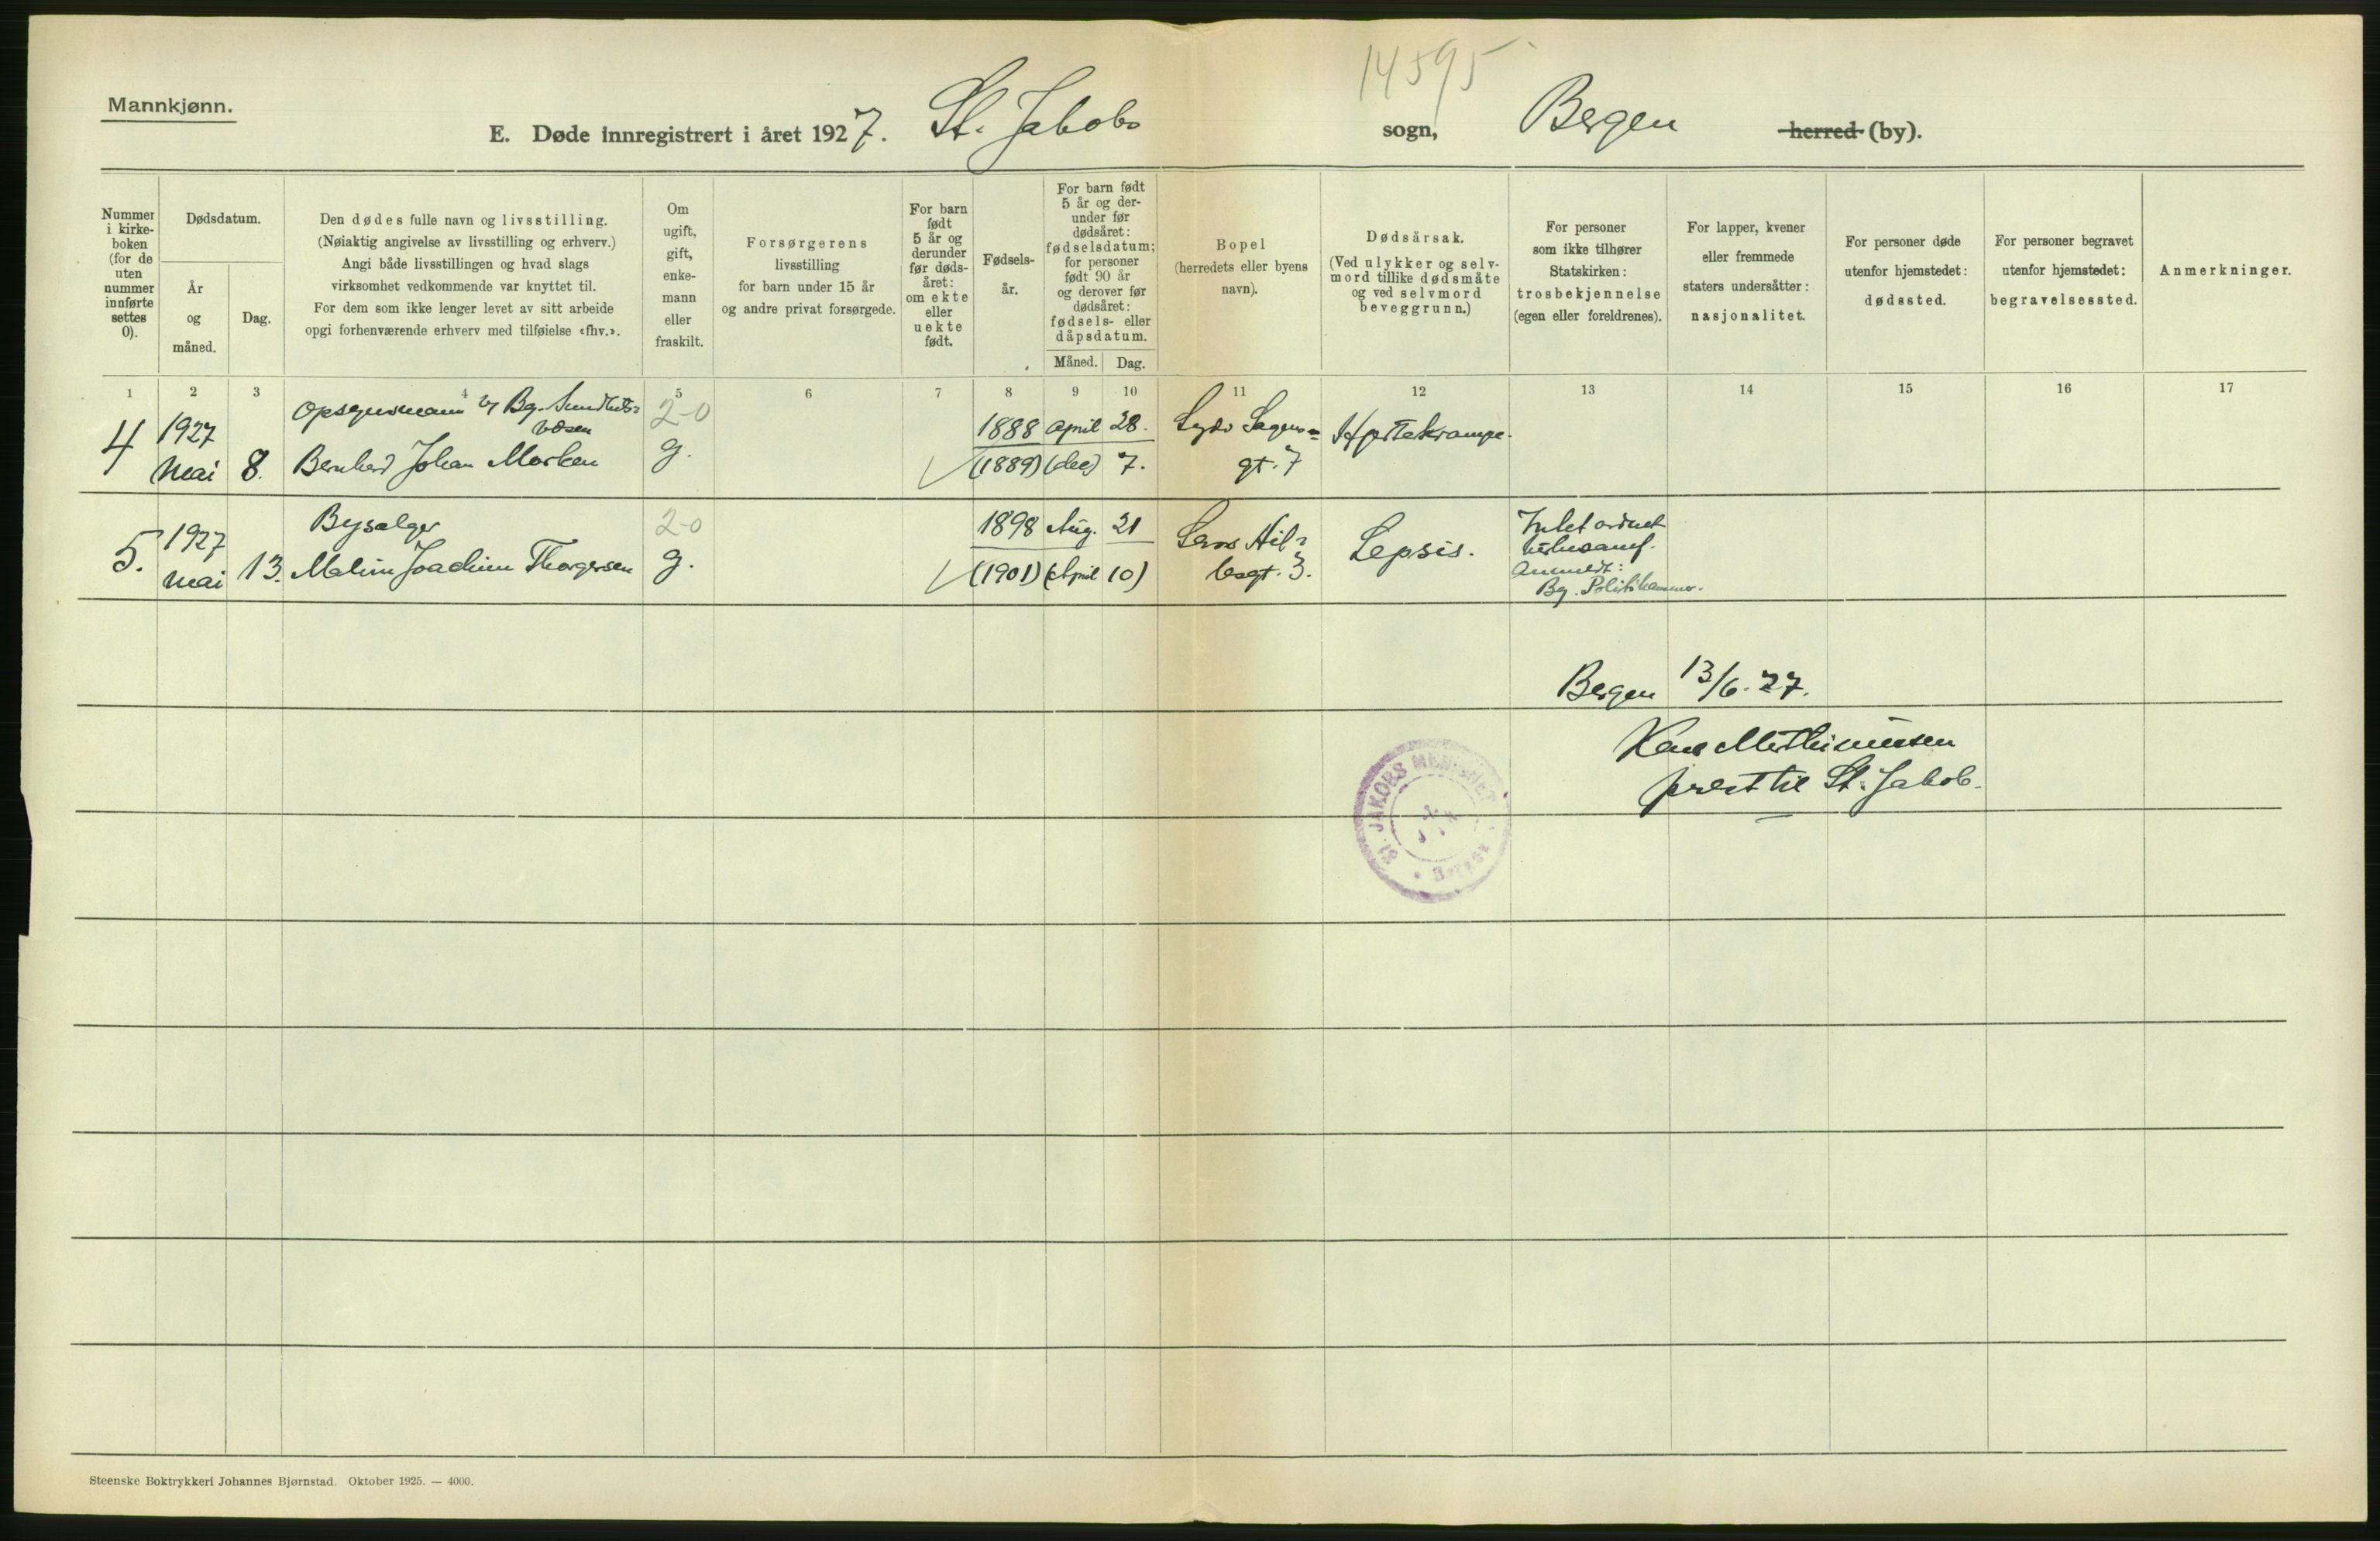 14595
Mannkjønn.
E. Døde innregistrert i året 1927. St. Jakobs sogn, Bergen herred (by).
Nummer i kirkeboken (for de uten nummer innførte settes 0).
Dødsdatum.
År og måned.
Dag.
Den dødes fulle navn og livsstilling.
(Nøiaktig angivelse av livsstilling og erhverv.)
Angi både livsstillingen og hvad slags
virksomhet vedkommende var knyttet til.
For dem som ikke lenger levet av sitt arbeide
opgi forhenværende erhverv med tilføielse «fhv.».
Om ugift, gift, enkemann eller fraskilt.
Forsørgerens
livsstilling
for barn under 15 år
og andre privat forsørgede.
For barn født 5 år og derunder før dødsåret: om ekte eller uekte født.
Fødselsår.
For barn født 5 år og derunder før dødsåret: fødselsdatum; for personer født 90 år og derover før dødsåret: fødsels- eller dåpsdatum.
Måned. Dag.
Bopel
(herredets eller byens navn).
Dødsårsak.
(Ved ulykker og selvmord tillike dødsmåte og ved selvmord beveggrunn.)
For personer
som ikke tilhører
Statskirken:
trosbekjennelse
(egen eller foreldrenes).
For lapper, kvener
eller fremmede
staters undersåtter:
nasjonalitet.
For personer døde
utenfor hjemstedet:
dødssted.
For personer begravet
utenfor hjemstedet:
begravelsessted.
Anmerkninger.
1 2 3 4 5 6 7 8 9 10 11 12 13 14 15 16 17
Opsynsmann v/ Bg. Sundhets- 2-0
væsen
4 1927 1888 april 28. Lyder Sagens- Hjertekrampe.
Mai 8. Bernhard Johan Morken g. (1889) (dec) 7. gt. 7
Bysælger 2-0
5. 1927 1898 Aug. 21 Sepsis. Intet ordnet
mai 13. Joachim Thorgersen g. (1901) (April 10) gt. 3. kirkesamf.
Anmeldt:
Bg. Politikammer.
Bergen 13/6. 27.
prest til St. Jakob.
St. JAKOBS MENIGHET
Bergen
Steenske Boktrykkeri Johannes Bjørnstad. Oktober 1925. — 4000.